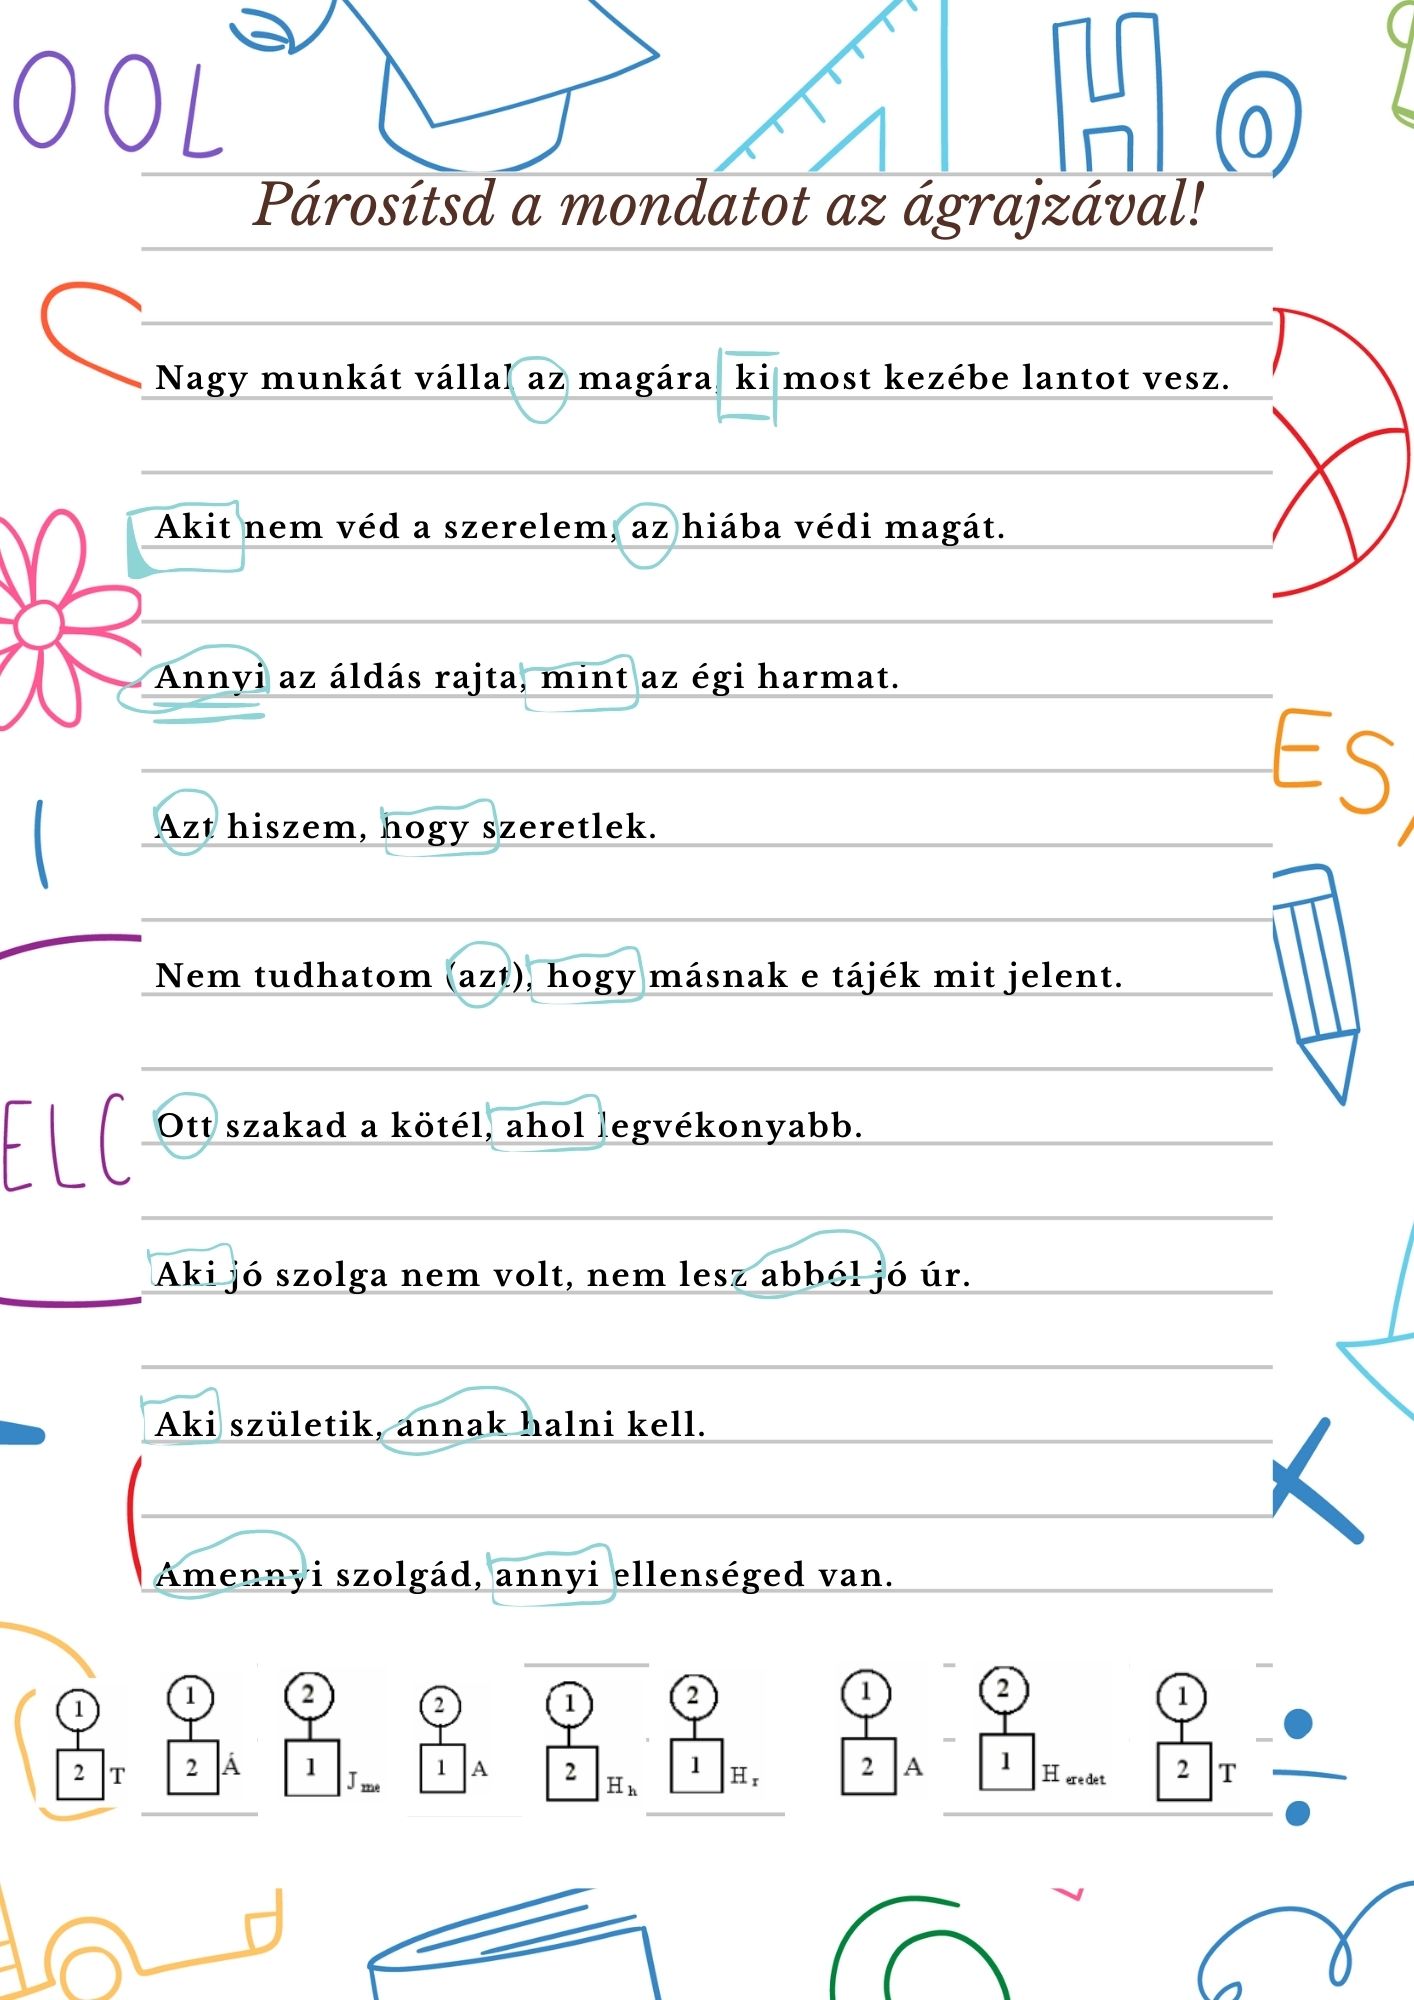 OOL
Ho
Párosítsd a mondatot az ágrajzával!
Nagy munkát vállal az magára, ki most kezébe lantot vesz.
Akit nem véd a szerelem, az hiába védi magát.
Annyi az áldás rajta, mint az égi harmat.
ES,
Azt hiszem, hogy szeretlek.
Nem tudhatom (azt), hogy másnak e tájék mit jelent.
ELC
Ott szakad a kötél, ahol legvékonyabb.
Aki jó szolga nem volt, nem lesz abból jó úr.
Aki születik, annak halni kell.
Amennyi szolgád, annyi ellenséged van.
1 1 2 2 1 2 1 2 1
2 T 2 Á 1 J me 1 A 2 H h 1 H r 2 A 1 H eredet 2 T